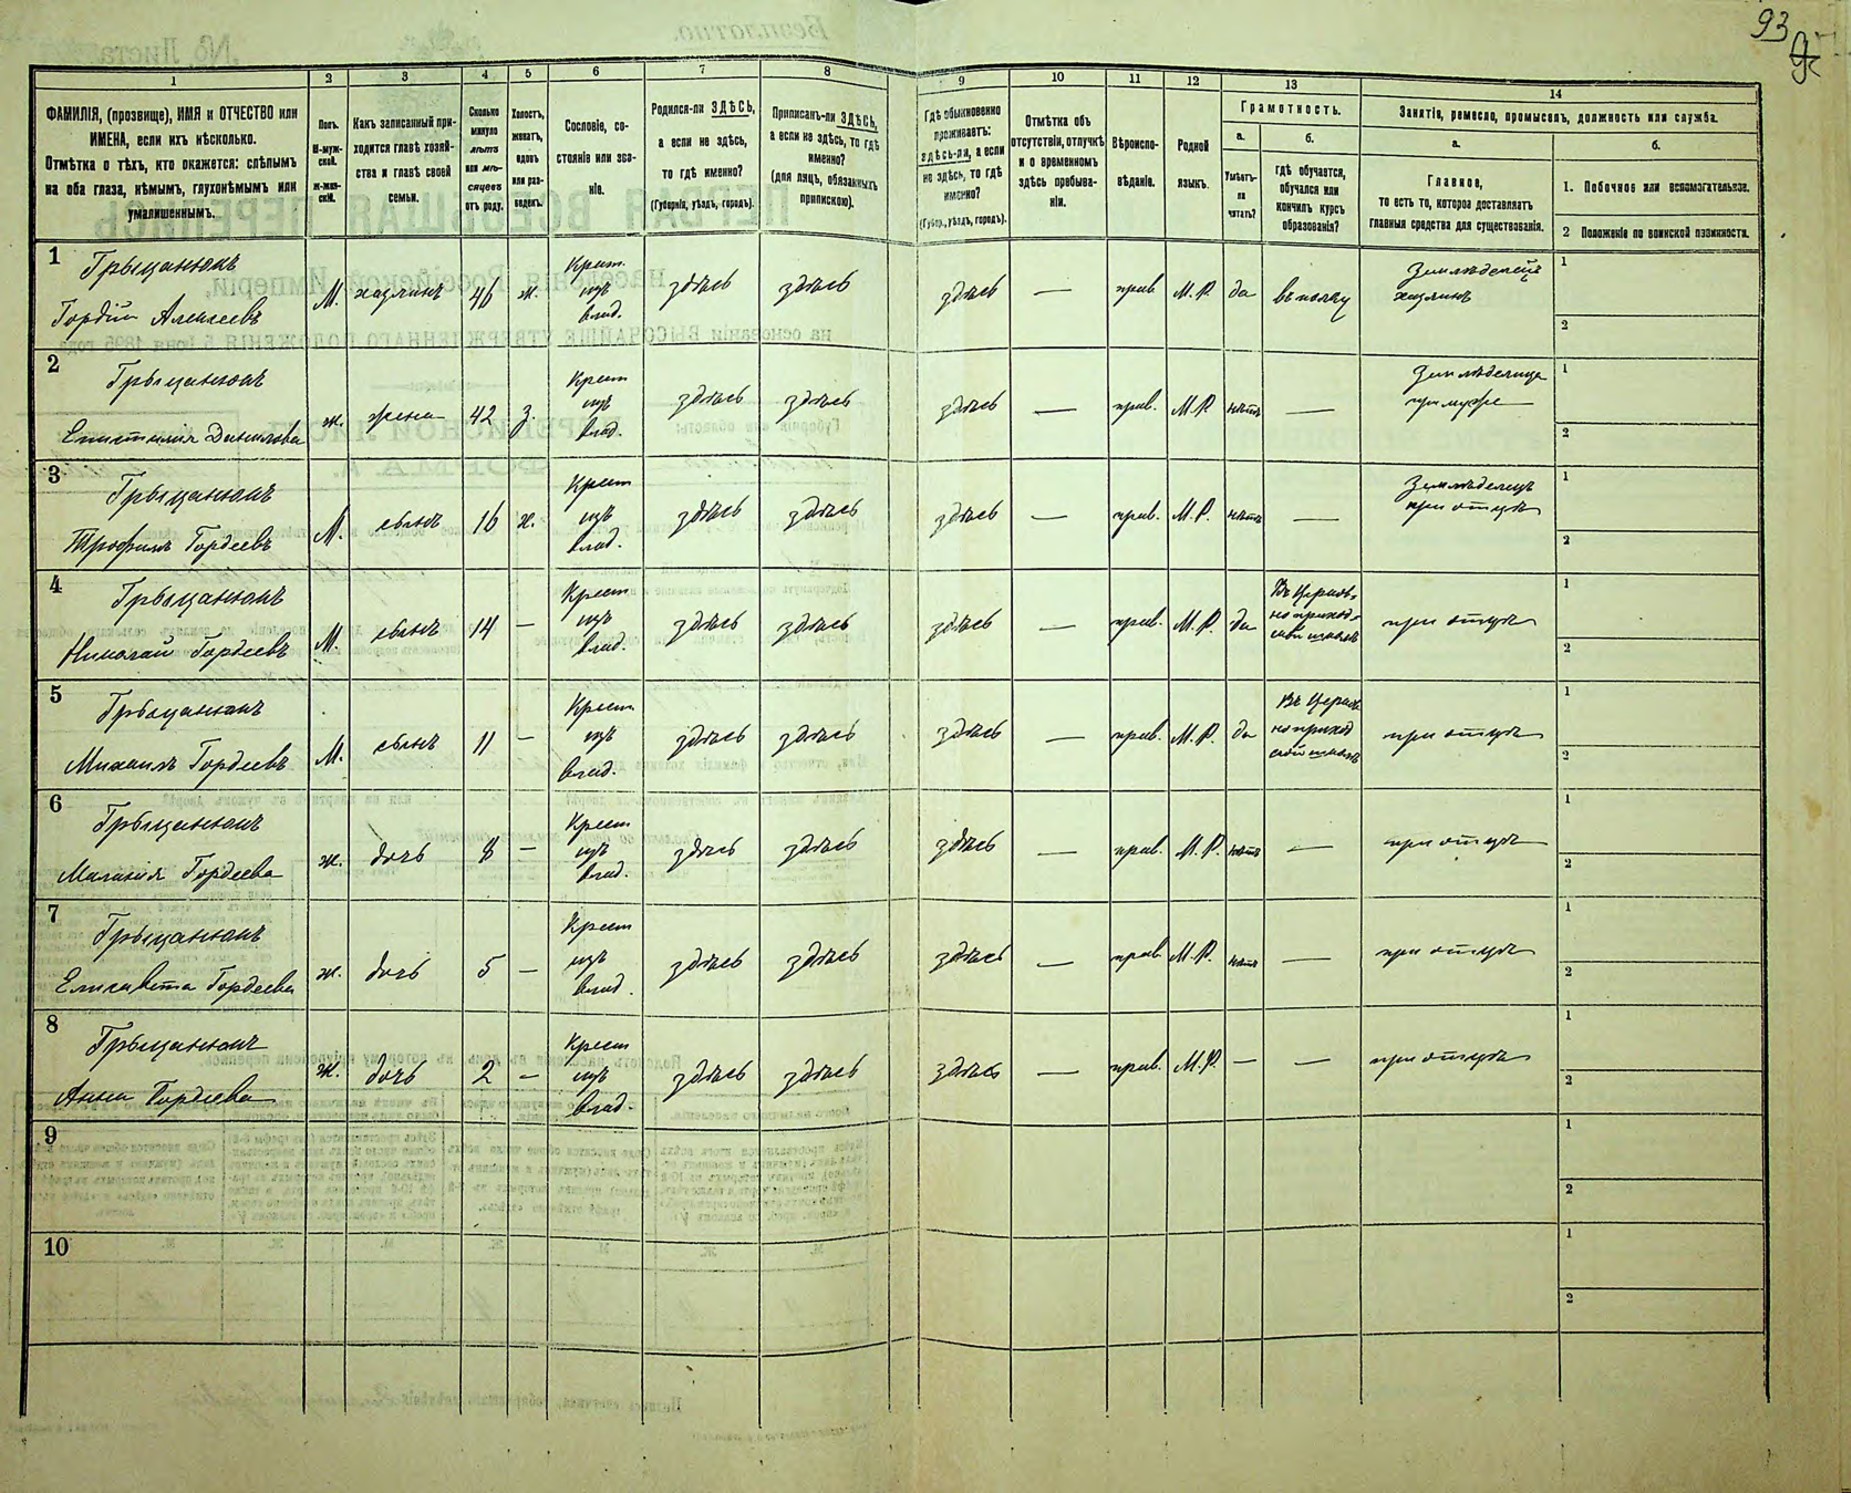 93
1 2 3 4 5 6 7 8 9 10 11 12 13 14
ФАМИЛІЯ, (прозвище), ИМЯ и ОТЧЕСТВО или
ИМЕНА, если ихъ нѣсколько.
Отмѣтка о тѣхъ, кто окажется: слѣпымъ
на оба глаза, нѣмымъ, глухонѣмымъ или
умалишеннымъ.
Полъ.
М-муж-
ской.
ж-жен-
скій.
Какъ записанный при-
ходится главѣ хозяй-
ства и главѣ своей
семьи.
Сколько
минуло
лѣтъ
или мѣ-
сяцевъ
отъ роду.
Холостъ,
женатъ,
вдовъ
или раз-
веденъ.
Сословіе, со-
стояніе или зва-
ніе.
Родился-ли ЗДѢСЬ,
а если не здѣсь,
то гдѣ именно?
(Губернія, уѣздъ, городъ).
Приписанъ-ли ЗДѢСЬ,
а если не здѣсь, то гдѣ
именно?
(для лицъ, обязанныхъ
припискою).
Гдѣ обыкновенно
проживаетъ:
здѣсь-ли, а если
не здѣсь, то гдѣ
именно?
(Губер., уѣздъ, городъ).
Отмѣтка объ
отсутствіи, отлучкѣ
и о временномъ
здѣсь пребыва-
ніи.
Вѣроиспо-
вѣданіе.
Родной
языкъ.
Грамотность.
а.
Умѣетъ-
ли
читать?
б.
гдѣ обучается,
обучался или
кончилъ курсъ
образованія?
Занятіе, ремесло, промыселъ, должность или служба.
а.
Главное,
то есть то, которое доставляетъ
главныя средства для существованія.
б.
1. Побочное или вспомогательное.
2 Положеніе по воинской повинности.
1 Грыцанюкъ
Гордій Алексеевъ
М. хазяинъ 46 ж. Крест. изъ влад. здѣсь здѣсь здѣсь — прав. М. Р. да въ полку Земледелецъ хазяинъ 1 2
2 Грыцанюкъ
Епистимія Данилова
ж. жена 42 з. Крест изъ влад. здѣсь здѣсь здѣсь — прав. М. Р. нѣтъ — Земледелица при муже 1 2
3 Грыцанюкъ
Трофимъ Гордеевъ
М. сынъ 16 х. Крест изъ влад. здѣсь здѣсь здѣсь — прав. М. Р. нѣтъ — Земледелецъ при отцѣ 1 2
4 Грыцанюкъ
Николай Гордеевъ
М. сынъ 14 — Крест изъ влад. здѣсь здѣсь здѣсь — прав. М. Р. да Въ Церков-но приход-ской школѣ при отцѣ 1 2
5 Грыцанюкъ
Михаилъ Гордеевъ
М. сынъ 11 — Крест. изъ влад. здѣсь здѣсь здѣсь — прав. М. Р. да Въ Церков но приход ской школѣ при отцѣ 1 2
6 Грыцанюкъ
Маланія Гордеева
ж. дочь 8 — Крест изъ влад. здѣсь здѣсь здѣсь — прав. М. Р. нѣтъ — при отцѣ 1 2
7 Грыцанюкъ
Елисавета Гордеева
ж. дочь 5 — Крест изъ влад. здѣсь здѣсь здѣсь — прав. М. Р. нѣтъ — при отцѣ 1 2
8 Грыцанюкъ
Анна Гордеева
ж. дочь 2 — Крест изъ влад. здѣсь здѣсь здѣсь — прав. М. Р. — — при отцѣ 1 2
9 1 2
10 1 2